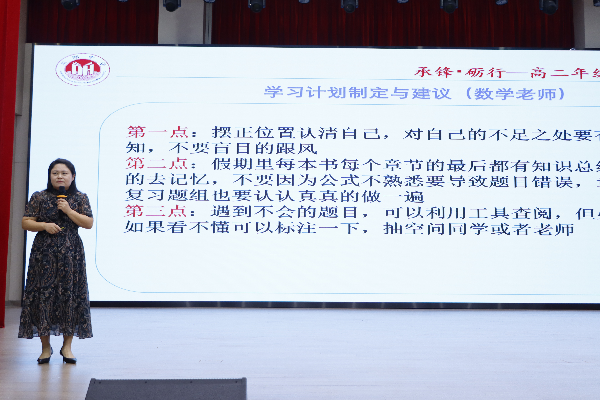 承锋·砺行—高二年级
学习计划制定与建议（数学老师）
第一点：摆正位置认清自己，对自己的不足之处要有
知，不要盲目的跟风
第二点：假期里每本书每个章节的最后都有知识总结
的去记忆，不要因为公式不熟悉要导致题目错误，
复习题组也要认认真真的做一遍
第三点：遇到不会的题目，可以利用工具查阅，但
如果看不懂可以标注一下，抽空问同学或者老师